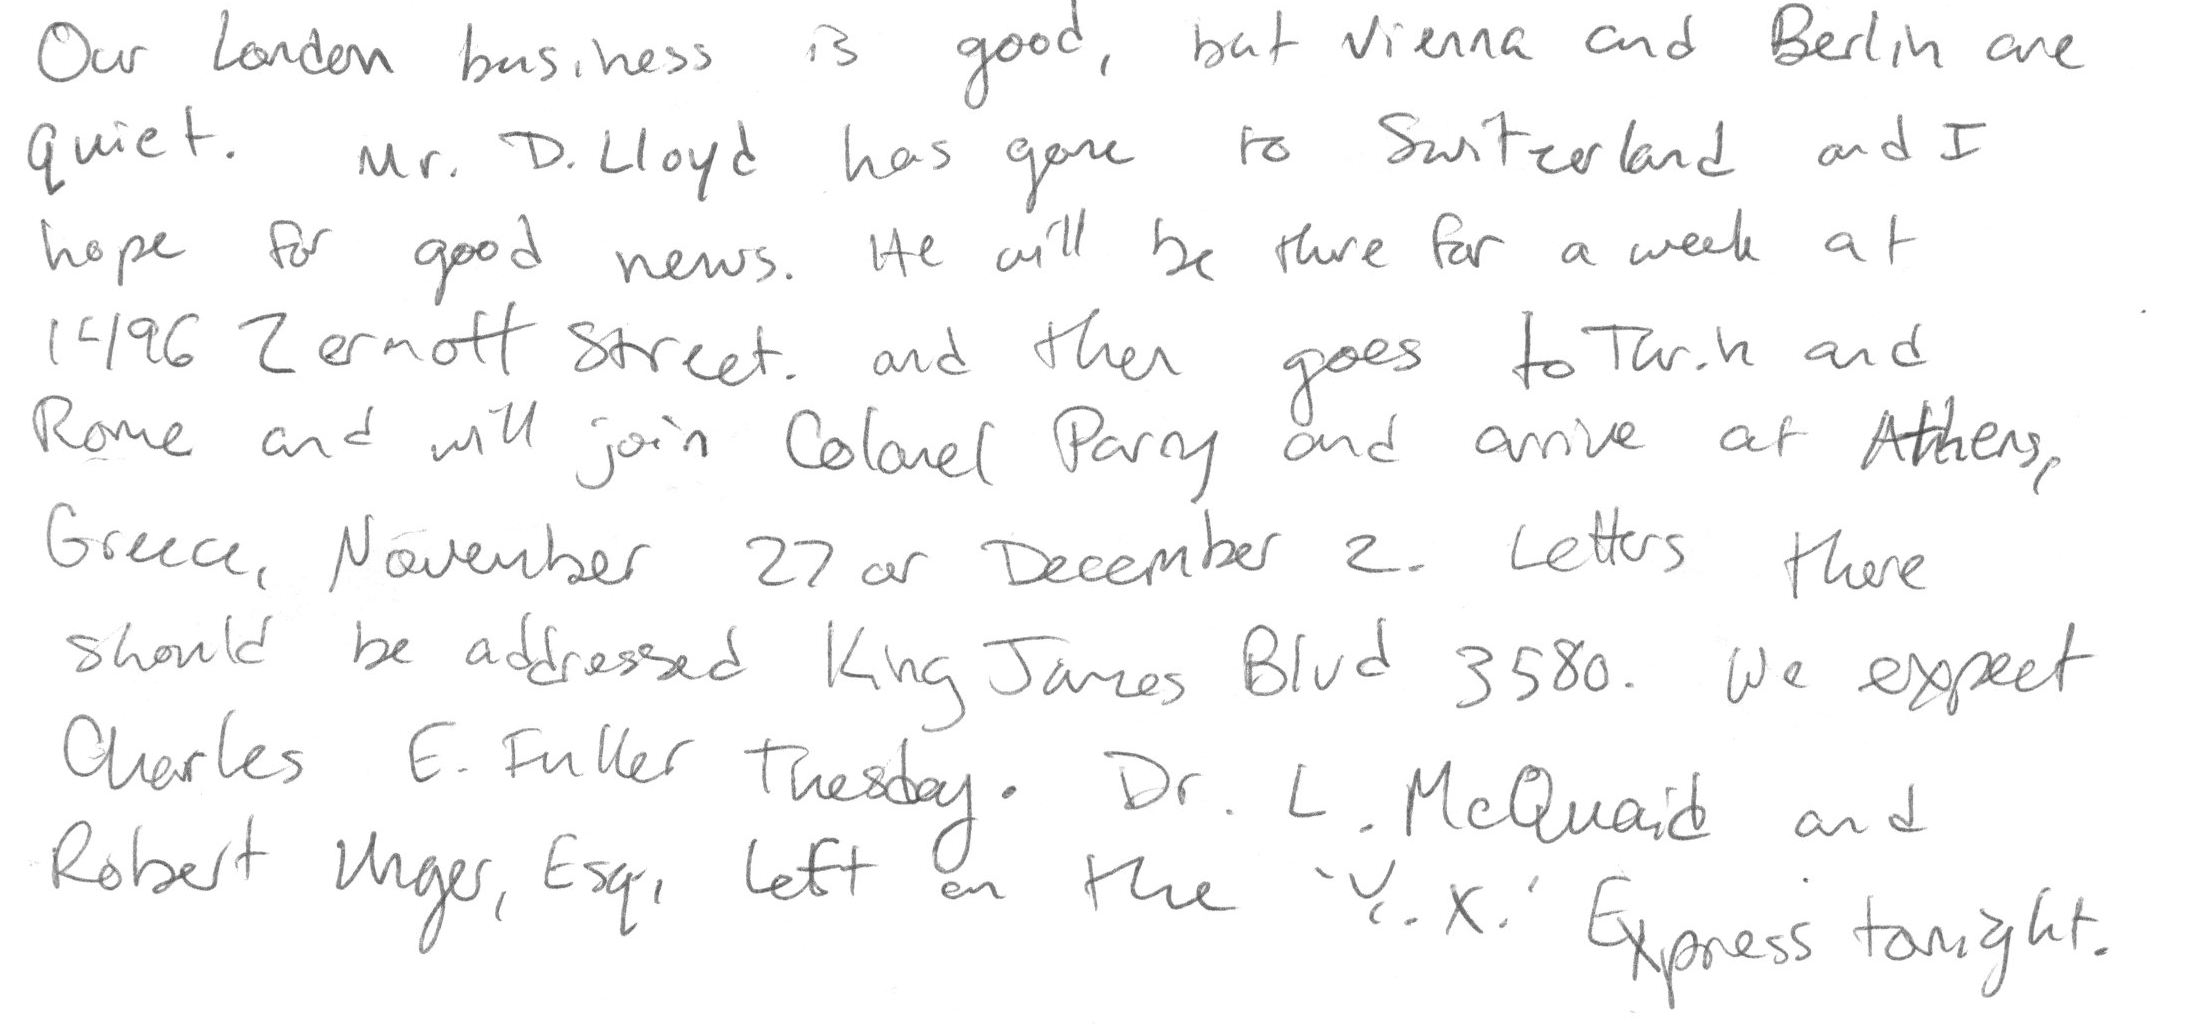 Our London business is good, but Vienna and Berlin are
quiet. Mr. D. Lloyd has gone to Switzerland and I
hope for good news. He will be there for a week at
1496 Zermott Street. and then goes to Turin and
Rome and will join Colonel Parry and arrive at Athens,
Greece, November 27 or December 2. Letters there
should be addressed King James Blvd 3580. We expect
Charles E. Fuller Tuesday. Dr. L. McQuaid and
Robert Unger, Esq, left on the 'Y. X.' Express tonight.